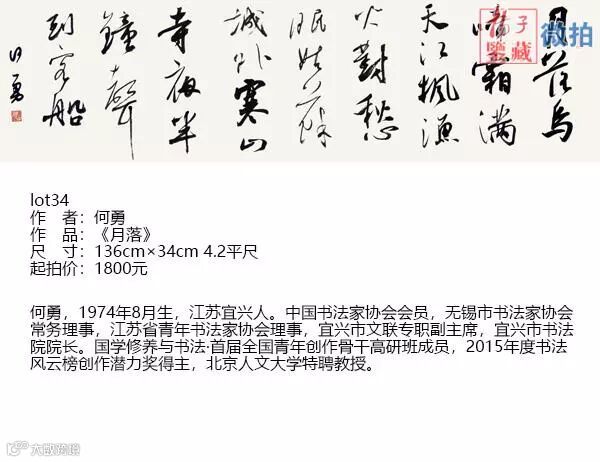 月落烏
啼霜滿
天江楓漁
火對愁
眠姑蘇
城外寒山
寺夜半
鐘聲
到客船
何勇
子
鑒藏
微拍
lot34
作 者：何勇
作 品：《月落》
尺 寸：136cm×34cm 4.2平尺
起拍价：1800元
何勇，1974年8月生，江苏宜兴人。中国书法家协会会员，无锡市书法家协会
常务理事，江苏省青年书法家协会理事，宜兴市文联专职副主席，宜兴市书法
院院长。国学修养与书法·首届全国青年创作骨干高研班成员，2015年度书法
风云榜创作潜力奖得主，北京人文大学特聘教授。
大数跨境